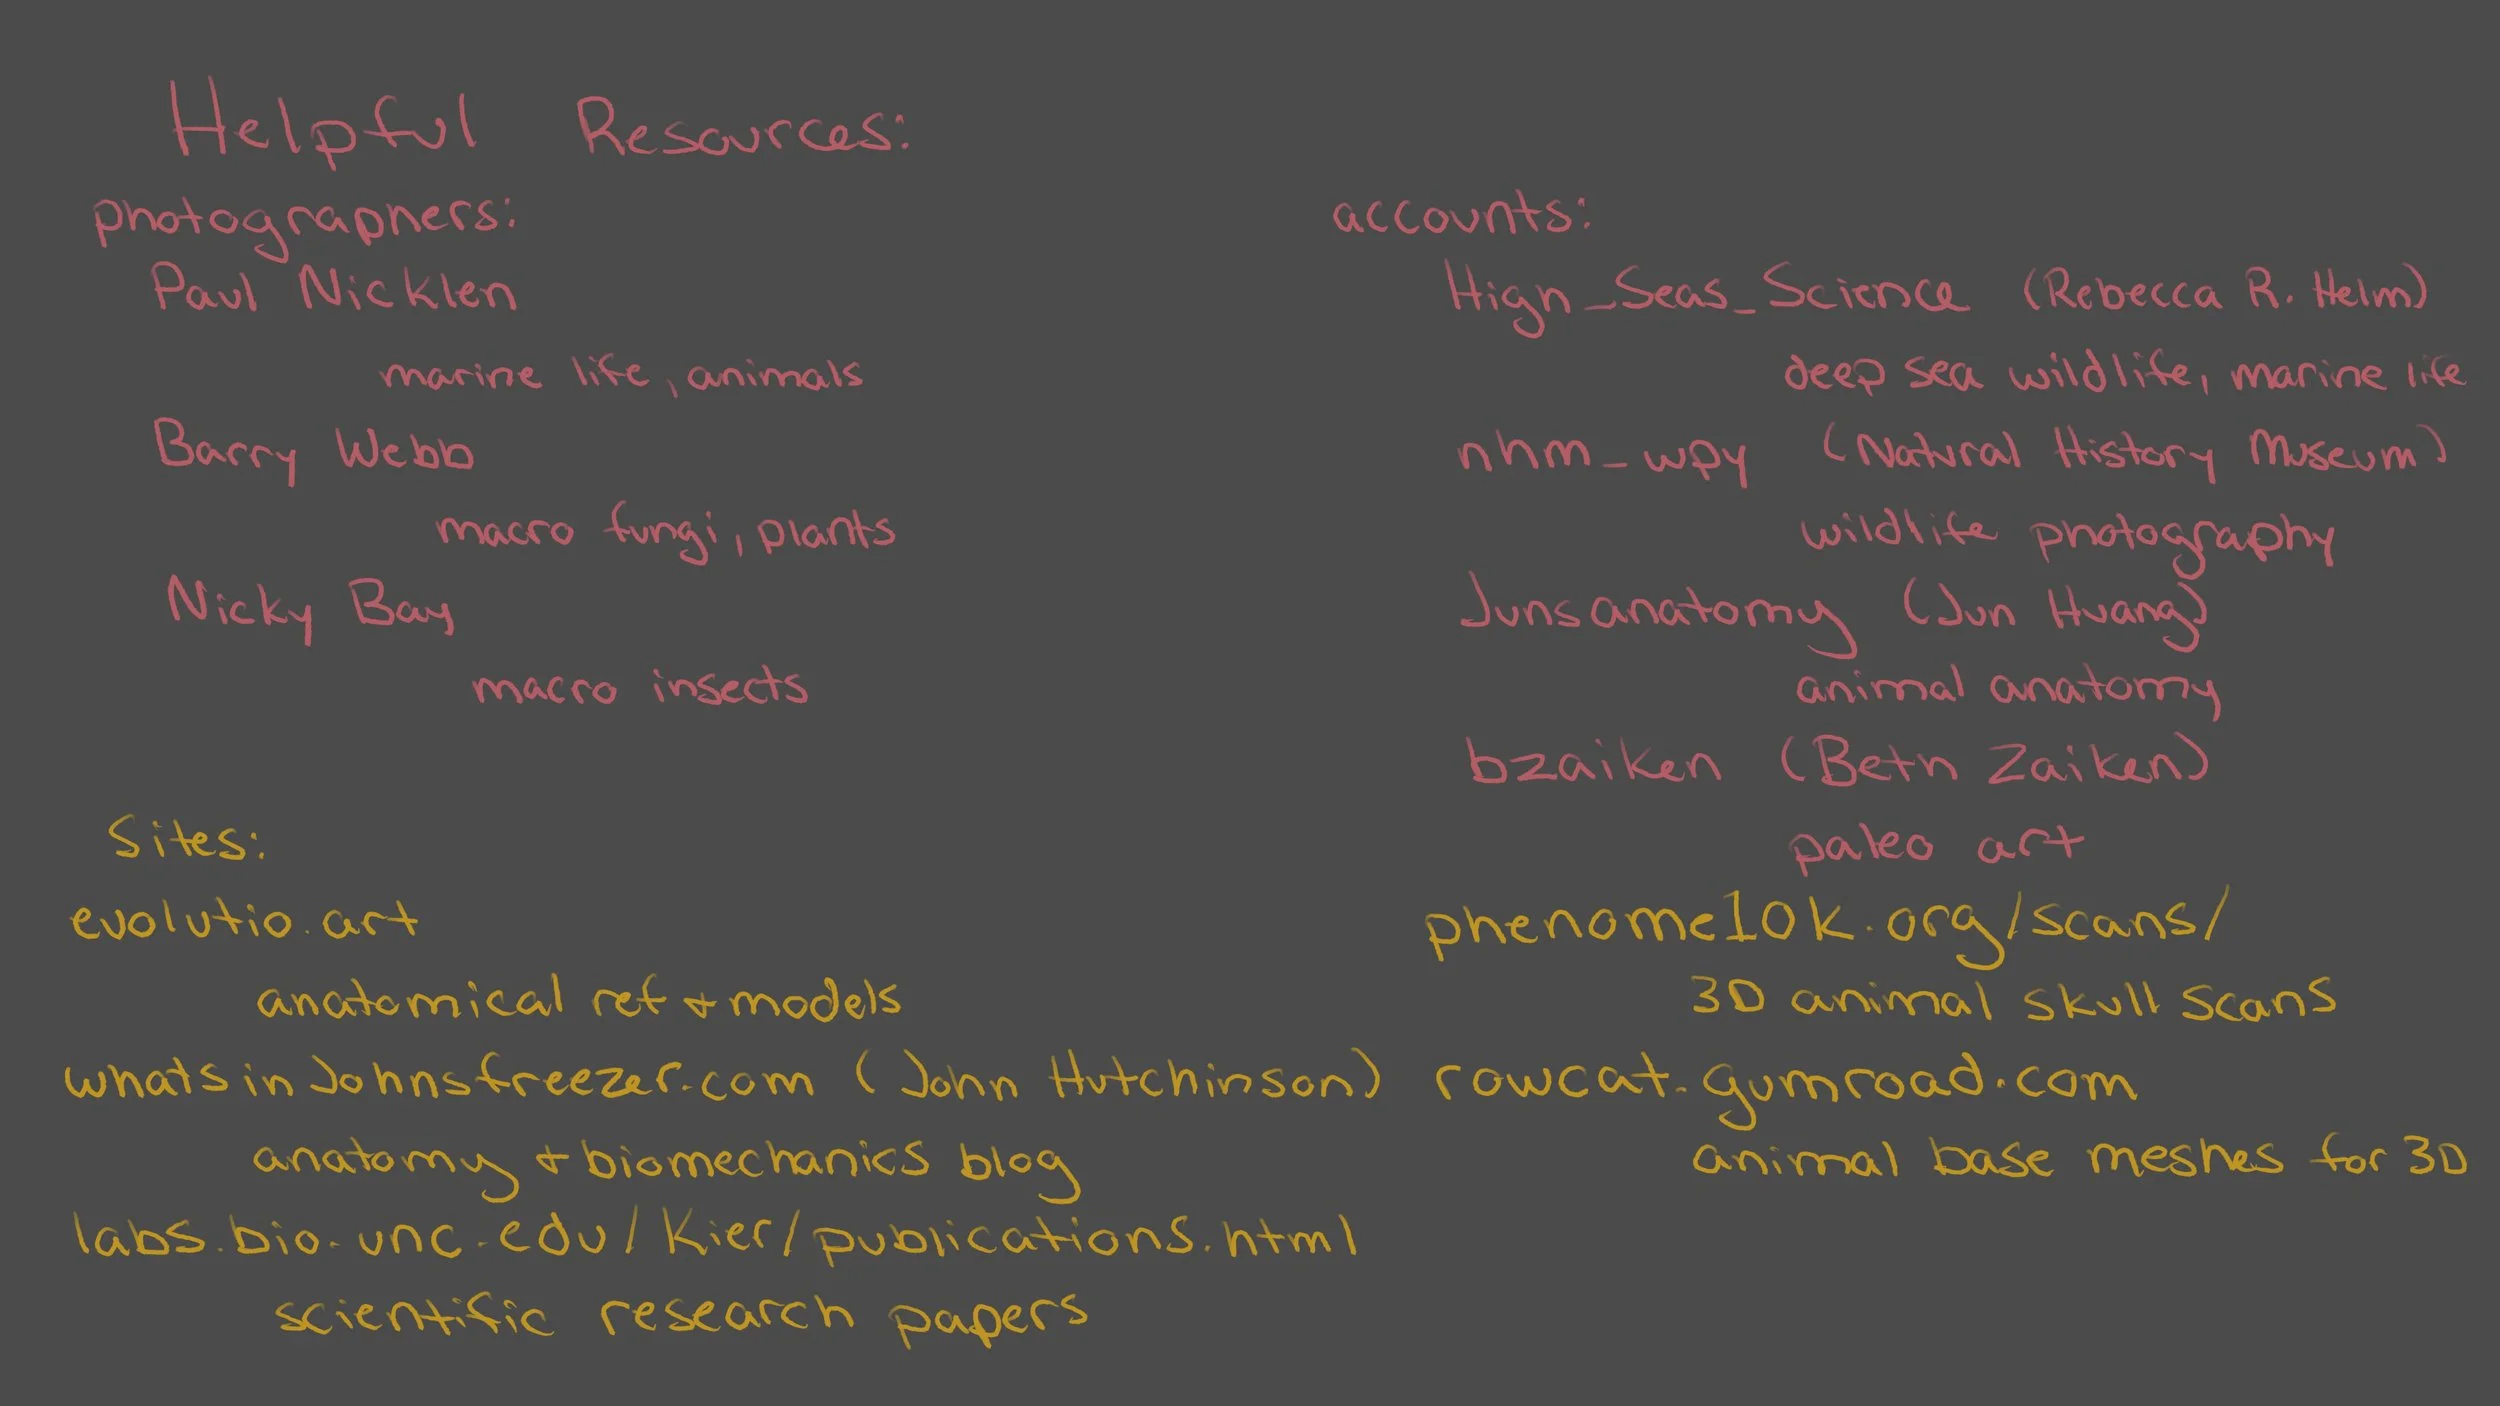 Helpful Resources:
photographers:
Paul Nicklen
marine life, animals
Barry Webb
macro fungi, plants
Nicky Bay
macro insects
accounts:
High_Seas_Science (Rebecca R. Helm)
deep sea wildlife, marine life
nhm_wpy (Natural History Museum)
wildlife photography
Junsanatomy (Jun Huang)
animal anatomy
bzaiken (Beth Zaiken)
paleo art
Sites:
evolutio.art
anatomical ref + models
whatsinJohnsfreezer.com (John Hutchinson)
anatomy + biomechanics blog
labs.bio.unc.edu/Kier/publications.html
scientific research papers
phenome10k.org/scans/
3D animal skull scans
rowcat.gumroad.com
animal base meshes for 3D